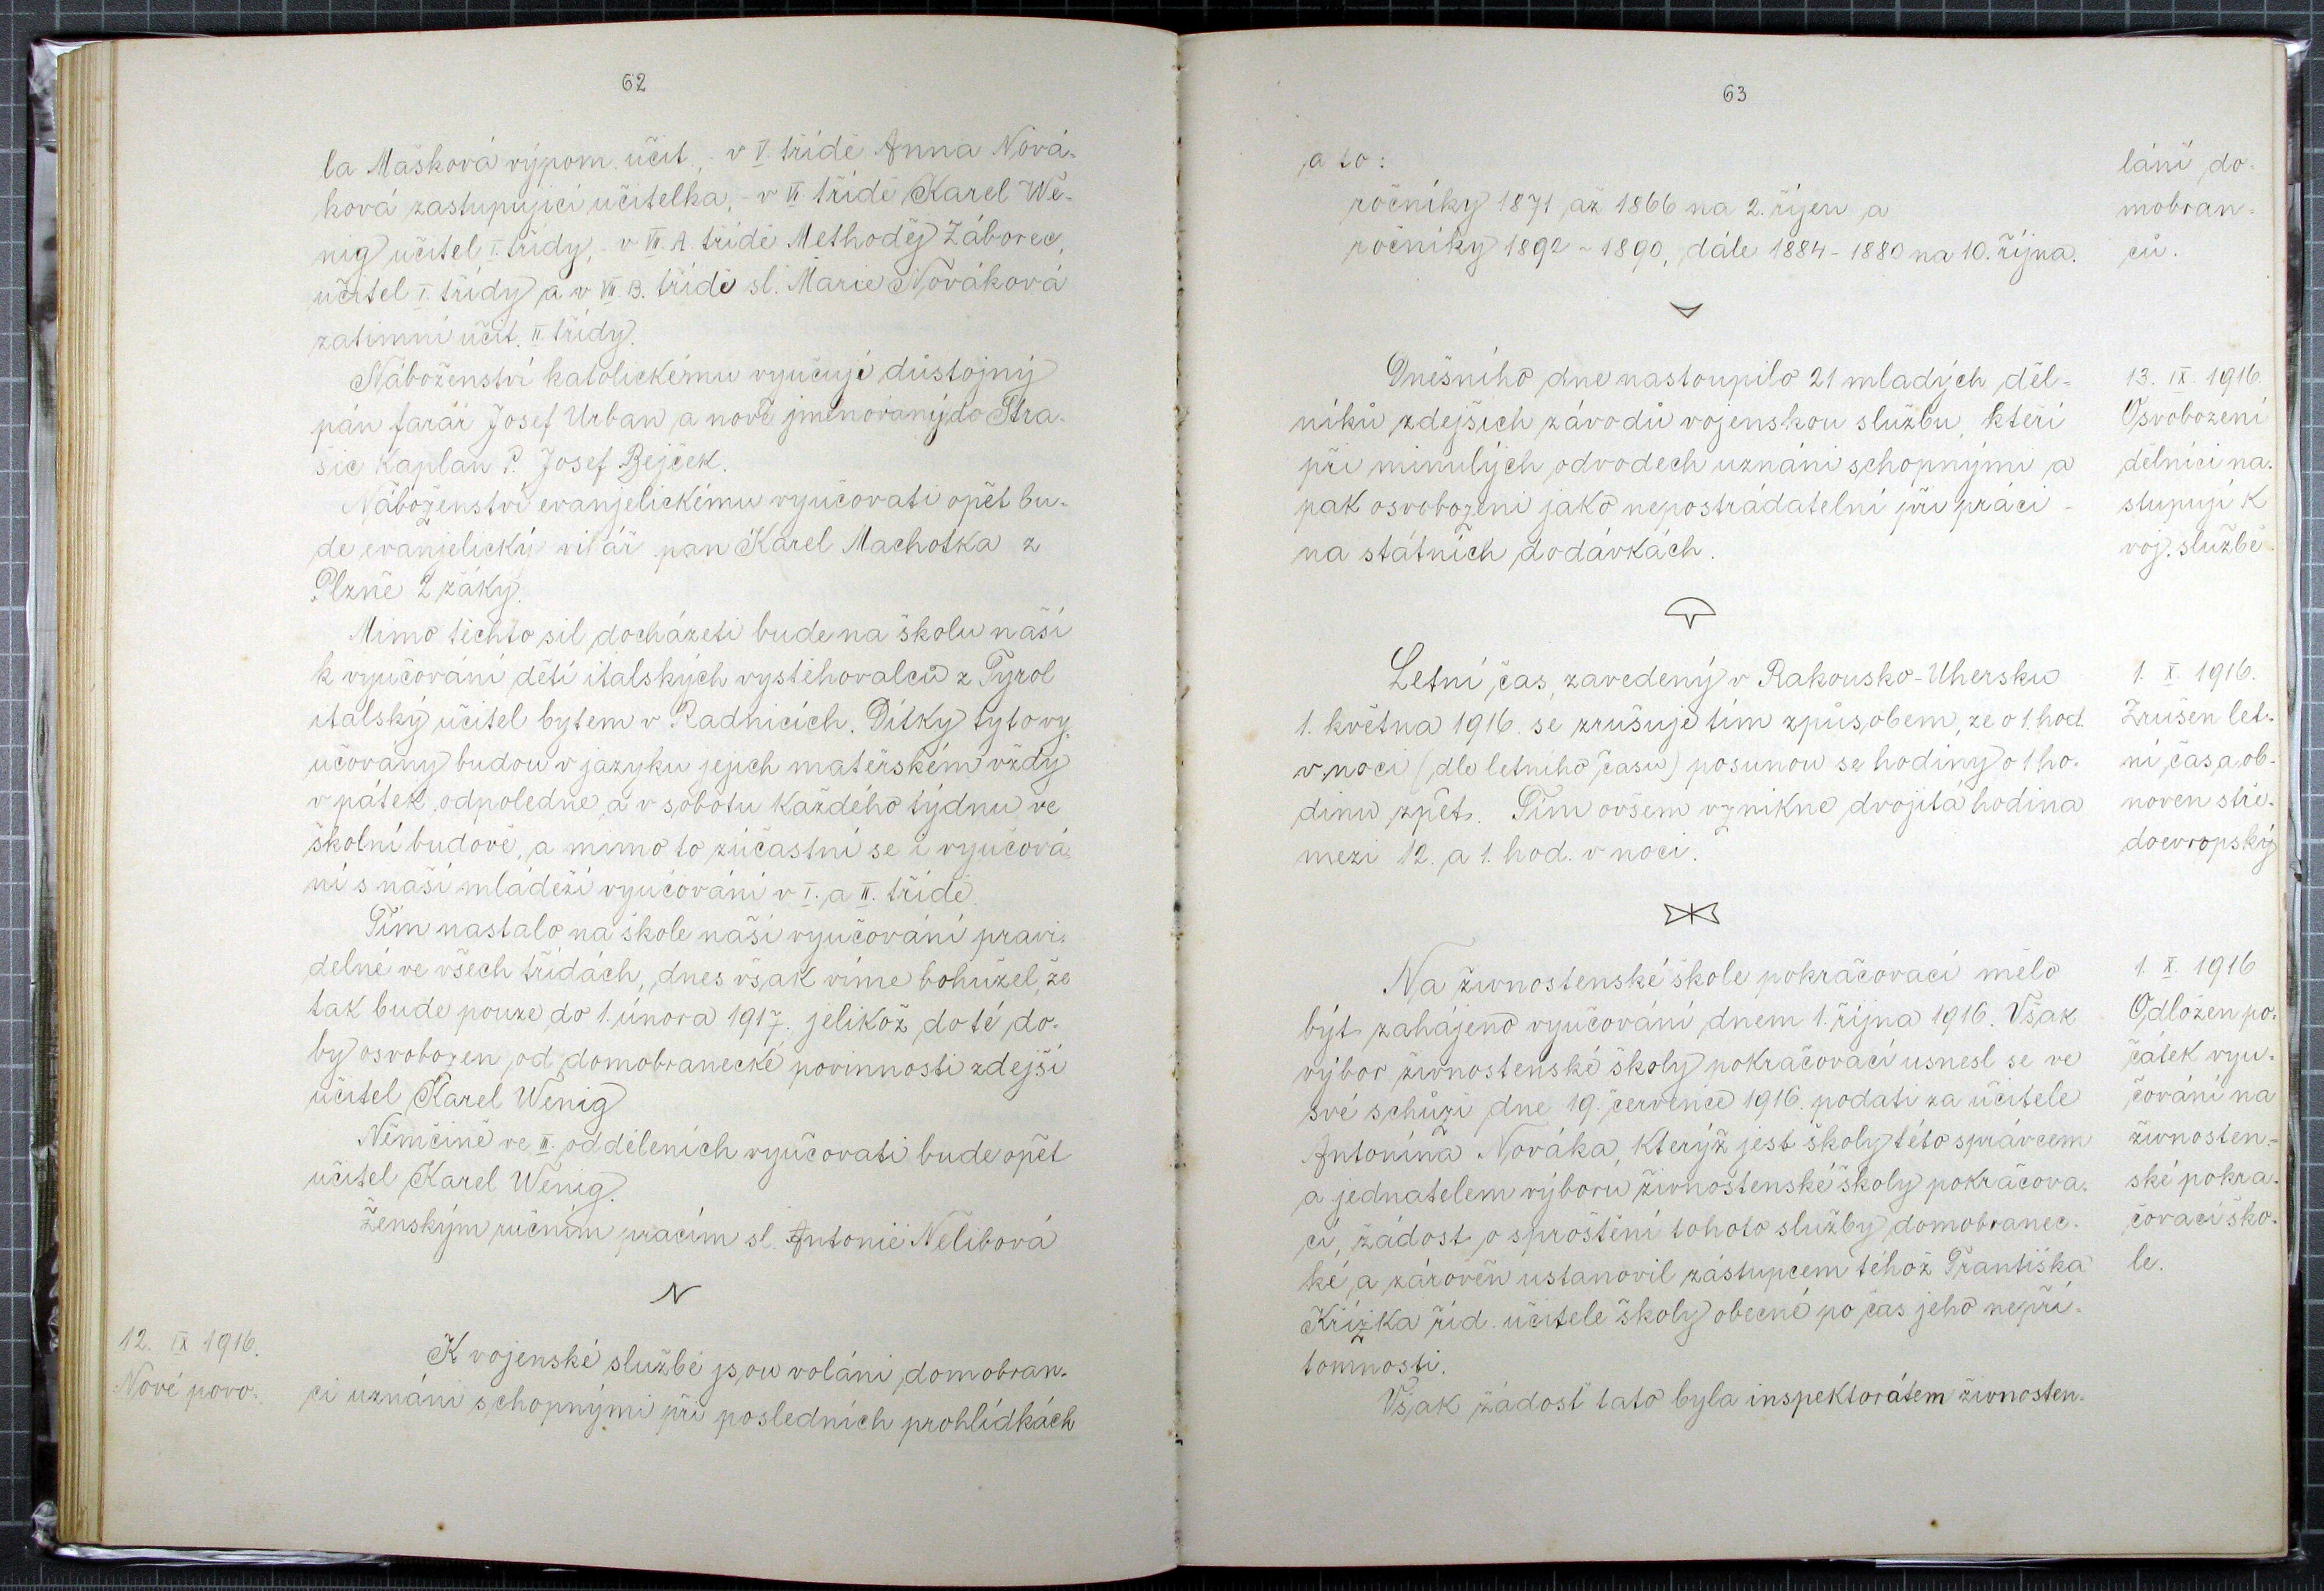 62
la Mašková výpom. učit., v V. třídě Anna Nová-
ková zastupující učitelka, - v VI. třídě Karel We-
nig učitel I. třídy, - v VII. A. třídě Methoděj Záborec,
učitel I. třídy a v VII. B. třídě sl. Marie Nováková
zatimní učit. II. třídy.
Náboženství katolickému vyučuje důstojný
pán farář Josef Urban a nově jmenovaný do Stra-
šic kaplan P. Josef Bejček.
Náboženství evanjelickému vyučovati opět bu-
de evanjelický vikář pan Karel Machotka z
Plzně 2 žáky.
Mimo těchto sil docházeti bude na školu naši
k vyučování dětí italských vystěhovalců z Tyrol
italský učitel bytem v Radnicích. Dítky tyto vy-
učovány budou v jazyku jejich mateřském vždy
v pátek odpoledne a v sobotu každého týdnu ve
školní budově, a mimo to zúčastní se i vyučová-
ní s naší mládeží vyučování v I. a II. třídě.
Tím nastalo na škole naší vyučování pravi-
delné ve všech třídách, dnes však víme bohužel, že
tak bude pouze do 1. února 1917. jelikož do té do-
by osvobozen od domobranecké povinnosti zdejší
učitel Karel Wenig
Němčině ve III. odděleních vyučovati bude opět
učitel Karel Wenig.
Ženským ručním pracím sl. Antonie Nelibová
12. IX 1916.
Nové povo-
K vojenské službě jsou voláni domobran-
ci uznáni schopnými při posledních prohlídkách
63
a to:
ročníky 1871 až 1866 na 2. říjen a
ročníky 1892 - 1890, dále 1884 - 1880 na 10. října.
lání do-
mobran-
ců.
Dnešního dne nastoupilo 21 mladých děl-
níků zdejších závodů vojenskou službu, kteří
při minulých odvodech uznáni schopnými a
pak osvobozeni jako nepostrádatelní při práci -
na státních dodávkách.
13. IX. 1916.
Osvobození
dělníci na-
stupují k
voj. službě
Letní čas, zavedený v Rakousko-Uhersku
1. května 1916. se zrušuje tím způsobem, že o 1. hod.
v noci (dle letního času) posunou se hodiny o 1 ho-
dinu zpět. Tím ovšem vznikne dvojitá hodina
mezi 12. a 1. hod. v noci.
1. X. 1916.
Zrušen let-
ní čas a ob-
noven stře-
doevropský
Na živnostenské škole pokračovací mělo
být zahájeno vyučování dnem 1. října 1916. Však
výbor živnostenské školy pokračovací usnesl se ve
své schůzi dne 19. července 1916. podati za učitele
Antonína Nováka, kterýž jest školy této správcem
a jednatelem výboru živnostenské školy pokračova-
cí, žádost o sproštění tohoto služby domobranec-
ké, a zároveň ustanovil zástupcem téhož Františka
Křížka říd. učitele školy obecné po čas jeho nepří-
tomnosti.
Však žádost tato byla inspektorátem živnosten-
1. X. 1916
Odložen po-
čátek vyu-
čování na
živnosten-
ské pokra-
čovací ško-
le.